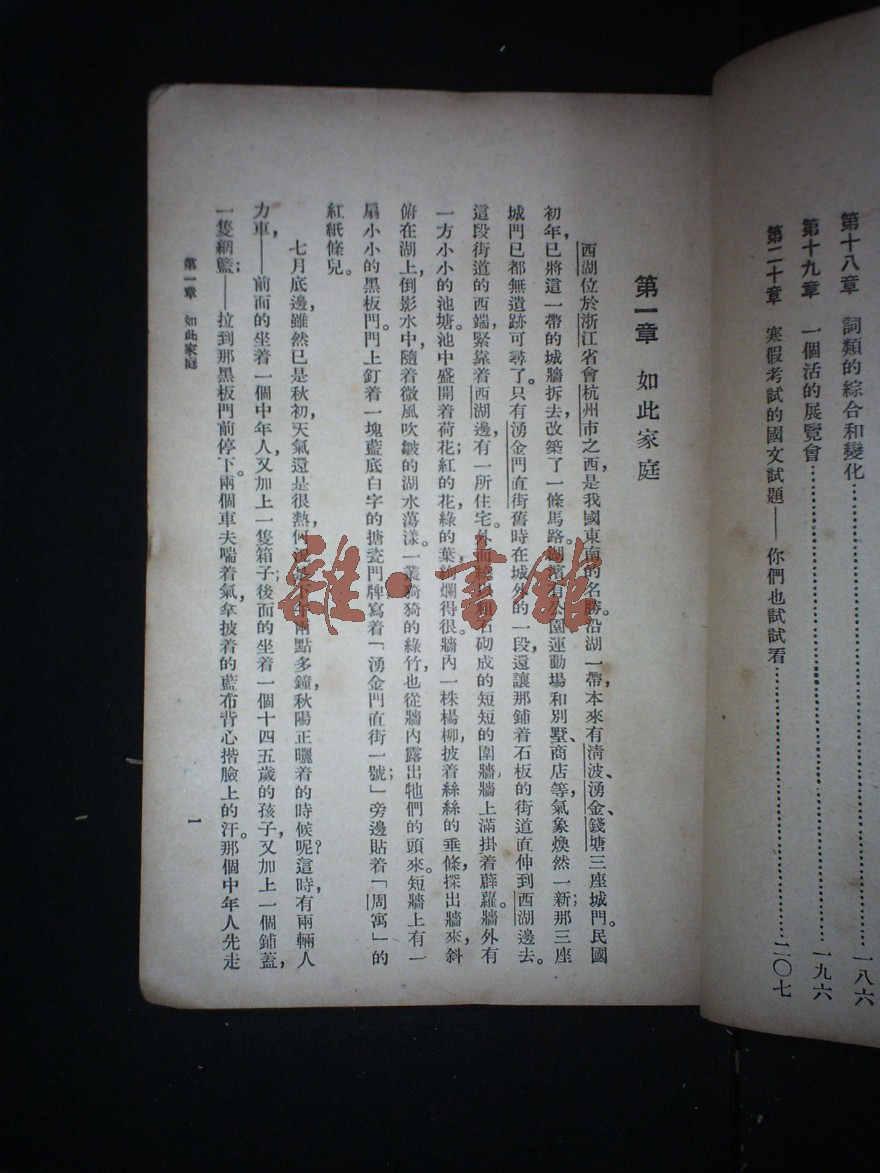 第十八章 詞類的綜合和變化…………一八六
第十九章 一個活的展覽會…………一九六
第二十章 寒假考試的國文試題——你們也試試看…………二〇七
第一章 如此家庭
西湖位於浙江省會杭州市之西，是我國東南的名勝。沿湖一帶，本來有清波、湧金、錢塘三座城門。民國
初年，已將這一帶的城牆拆去，改築了一條馬路；湖濱有公園、運動場和別墅、商店等，氣象煥然一新，那三座
城門已都無遺跡可尋了。只有湧金門直街舊時在城外的一段，還讓那鋪着石板的街道直伸到西湖邊去。
這段街道的西端，緊靠着西湖邊，有一所住宅。外面 石砌成的短短的圍牆，牆上滿掛着薜蘿。牆外有
一方小小的池塘。池中盛開着荷花；紅的花，綠的葉，絢爛得很。牆內一株楊柳，披着絲絲的垂條，探出牆來，斜
俯在湖上，倒影水中，隨着微風吹皺的湖水蕩漾。一叢猗猗的綠竹，也從牆內露出牠們的頭來。短牆上有一
扇小小的黑板門。門上釘着一塊藍底白字的搪瓷門牌，寫着「湧金門直街一號」；旁邊貼着「周寓」的
紅紙條兒。
七月底邊，雖然已是秋初，天氣還是很熱，何況是下午兩點多鐘，秋陽正曬着的時候呢？這時，有兩輛人
力車，——前面的坐着一個中年人，又加上一隻箱子；後面的坐着一個十四五歲的孩子，又加上一個鋪蓋，
一隻網籃；——拉到那黑板門前停下。兩個車夫喘着氣，拿披着的藍布背心揩臉上的汗。那個中年人先走
第一章 如此家庭
一
雜·書館